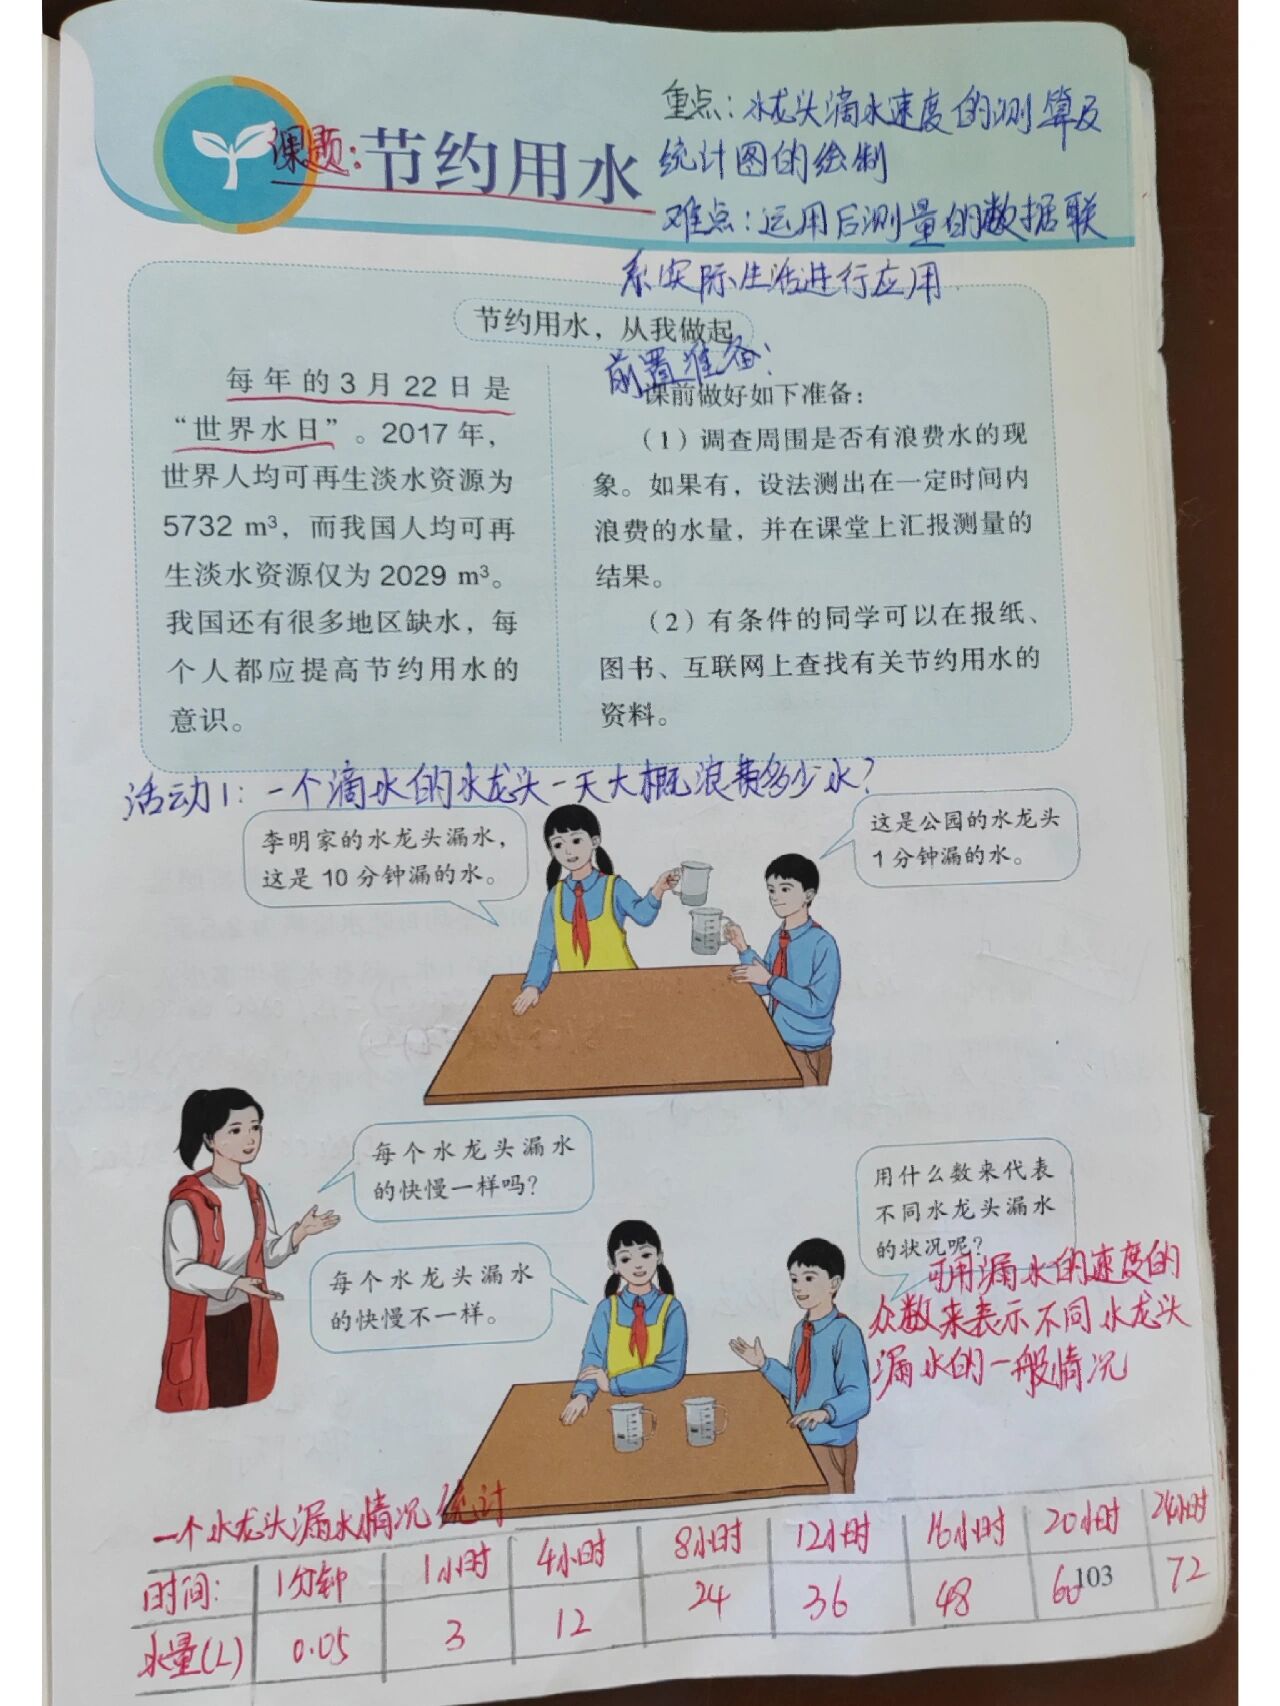 课题:节约用水
重点:水龙头滴水速度的测算及
统计图的绘制
难点:运用后测量的数据联
系实际生活进行应用
节约用水，从我做起
前置准备:
每年的3月22日是
“世界水日”。2017年，
世界人均可再生淡水资源为
5732 m³，而我国人均可再
生淡水资源仅为 2029 m³。
我国还有很多地区缺水，每
个人都应提高节约用水的
意识。
课前做好如下准备：
（1）调查周围是否有浪费水的现
象。如果有，设法测出在一定时间内
浪费的水量，并在课堂上汇报测量的
结果。
（2）有条件的同学可以在报纸、
图书、互联网上查找有关节约用水的
资料。
活动1:一个滴水的水龙头一天大概浪费多少水?
李明家的水龙头漏水，
这是 10 分钟漏的水。
这是公园的水龙头
1 分钟漏的水。
每个水龙头漏水
的快慢一样吗?
每个水龙头漏水
的快慢不一样。
用什么数来代表
不同水龙头漏水
的状况呢?
可用漏水的速度的
众数来表示不同水龙头
漏水的一般情况
一个水龙头漏水情况统计
时间: 1分钟 1小时 4小时 8小时 12小时 16小时 20小时 24小时
水量(L) 0.05 3 12 24 36 48 60 72
103